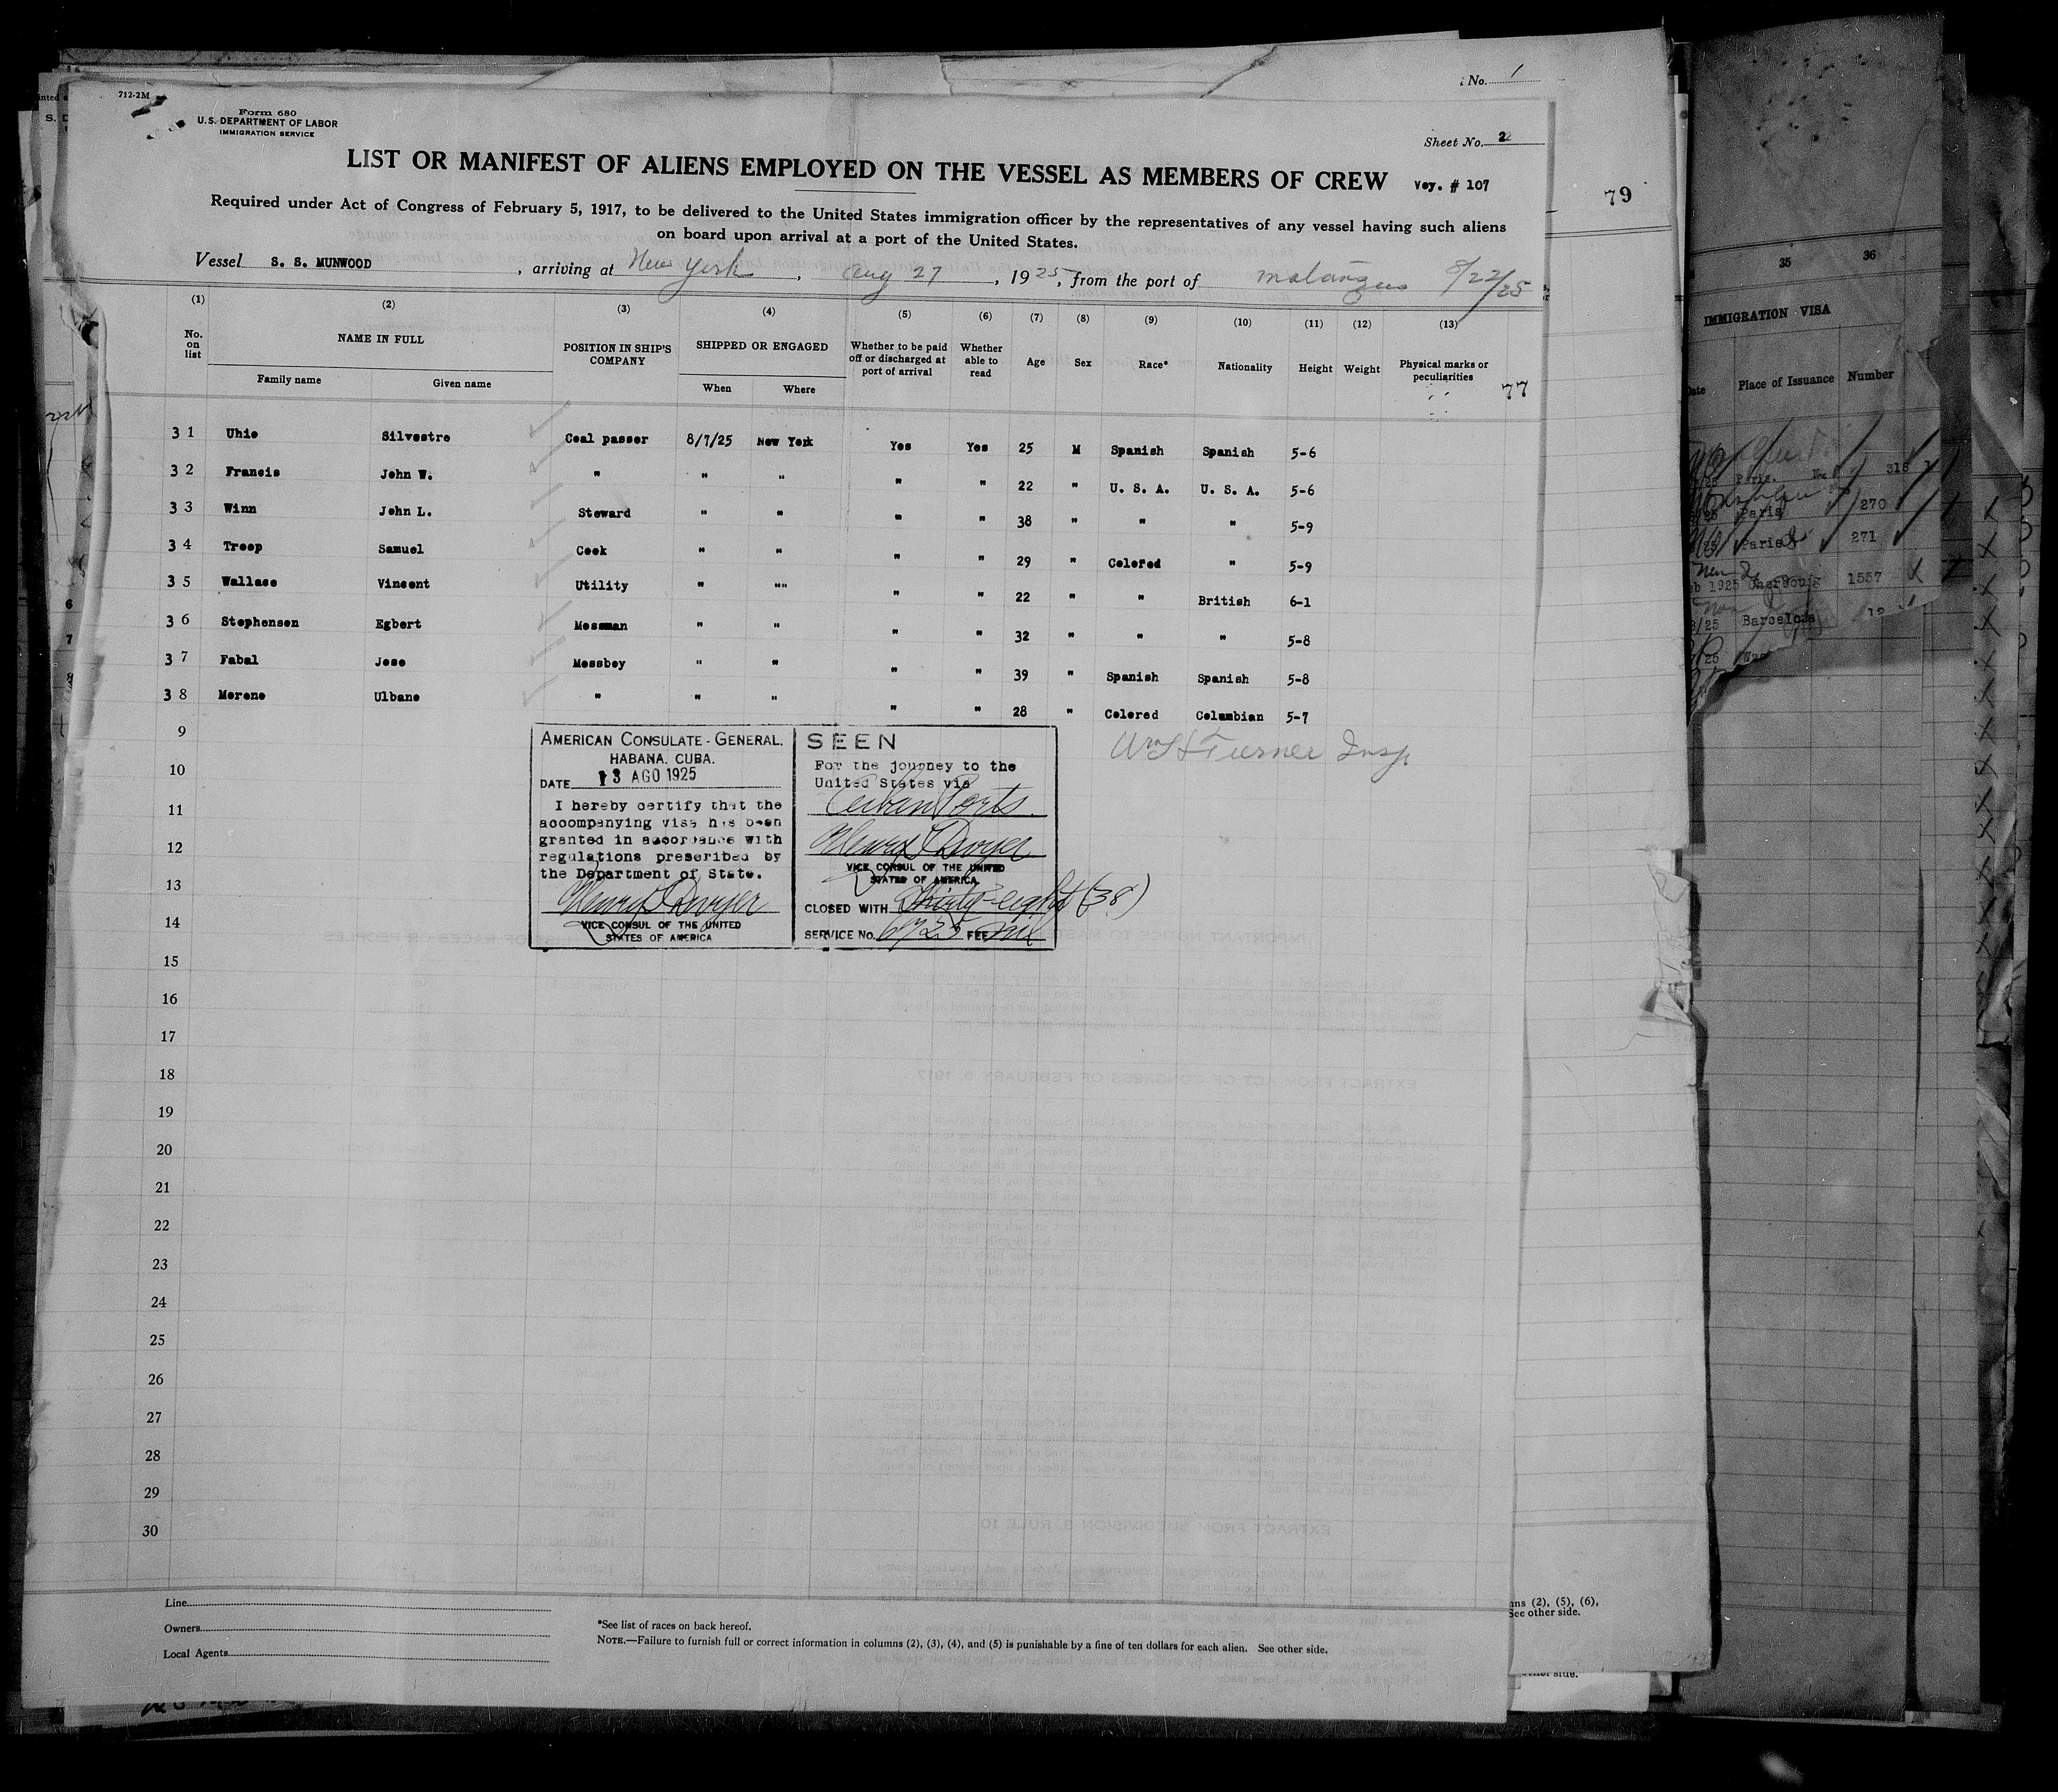 712-2M
Form 680
U.S. DEPARTMENT OF LABOR
IMMIGRATION SERVICE
No. 1
Sheet No. 2
LIST OR MANIFEST OF ALIENS EMPLOYED ON THE VESSEL AS MEMBERS OF CREW Voy. # 107
79
Required under Act of Congress of February 5, 1917, to be delivered to the United States immigration officer by the representatives of any vessel having such aliens
on board upon arrival at a port of the United States.
Vessel S. S. MUNWOOD, arriving at New York, Aug 27, 1925, from the port of Matanzas 8/22/25
(1) (2) (3) (4) (5) (6) (7) (8) (9) (10) (11) (12) (13)
No. on list NAME IN FULL POSITION IN SHIP'S COMPANY SHIPPED OR ENGAGED Whether to be paid off or discharged at port of arrival Whether able to read Age Sex Race* Nationality Height Weight Physical marks or peculiarities
Family name Given name When Where 77
3 1 Uhio Silvestre Coal passer 8/7/25 New York Yes Yes 25 M Spanish Spanish 5-6
3 2 Francis John W. " " " " " 22 " U. S. A. U. S. A. 5-6
3 3 Winn John L. Steward " " " " 38 " " " 5-9
3 4 Troop Samuel Cook " " " " 29 " Colored " 5-9
3 5 Wallace Vincent Utility " "" " " 22 " " British 6-1
3 6 Stephenson Egbert Messman " " " " 32 " " " 5-8
3 7 Fabal Jose Messboy " " " " 39 " Spanish Spanish 5-8
3 8 Moreno Ulbano " " " " " 28 " Colored Columbian 5-7
Wm H Turner Insp
AMERICAN CONSULATE-GENERAL.
HABANA. CUBA.
DATE 13 AGO 1925
I hereby certify that the
accompanying visa has been
granted in accordance with
regulations prescribed by
the Department of State.
Henry Dwyer
VICE CONSUL OF THE UNITED
STATES OF AMERICA
SEEN
For the journey to the
United States via
Cuban Ports.
Henry Dwyer
VICE CONSUL OF THE UNITED
STATES OF AMERICA
CLOSED WITH Thirty-eight (38)
SERVICE No. 6725 FEE nil
9
10
11
12
13
14
15
16
17
18
19
20
21
22
23
24
25
26
27
28
29
30
Line
Owners
Local Agents
*See list of races on back hereof.
NOTE.—Failure to furnish full or correct information in columns (2), (3), (4), and (5) is punishable by a fine of ten dollars for each alien. See other side.
(2), (5), (6),
See other side.
other side.
35 36
IMMIGRATION VISA
Date Place of Issuance Number
Paris. 315
Paris 270
Paris 271
1925 Cherbourg 1557
Barcelona
6
7
8